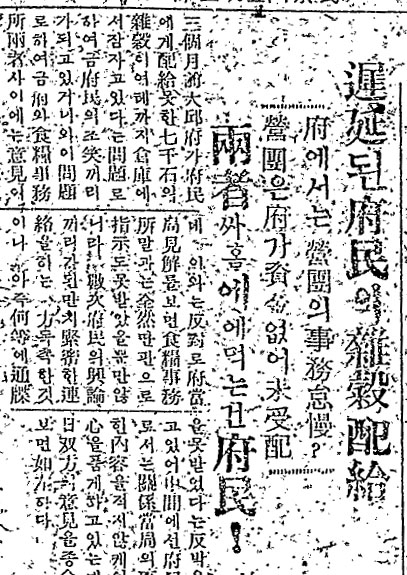 遲延된府民의雜穀配給
府에서는營團의事務怠慢?
營團은府가資金없어未受配
兩者싸홈에애먹는건府民!
三個月前大邱府가府民
에게配給못한七千石의
雜穀이여태까지倉庫에
서잠자고있다는問題로
하여금府民의조笑꺼리
가되고있거니와이問題
로하여금府와食糧事務
所兩者사이에는意見이
데 이와는反對로府當
局見解를보면食糧事務
所말과는全然딴판으로
指示도못받았을뿐만않
니라 數次府民의輿論
꺼리가된만치緊密한連
絡을하는 力독촉한것
이나 아즉何等에通牒
을못받었다는反박을
고있어
로서는關係當局의
한內容을적시않케
心을품게하고있는
日双方의意見을종合
보면如左하다